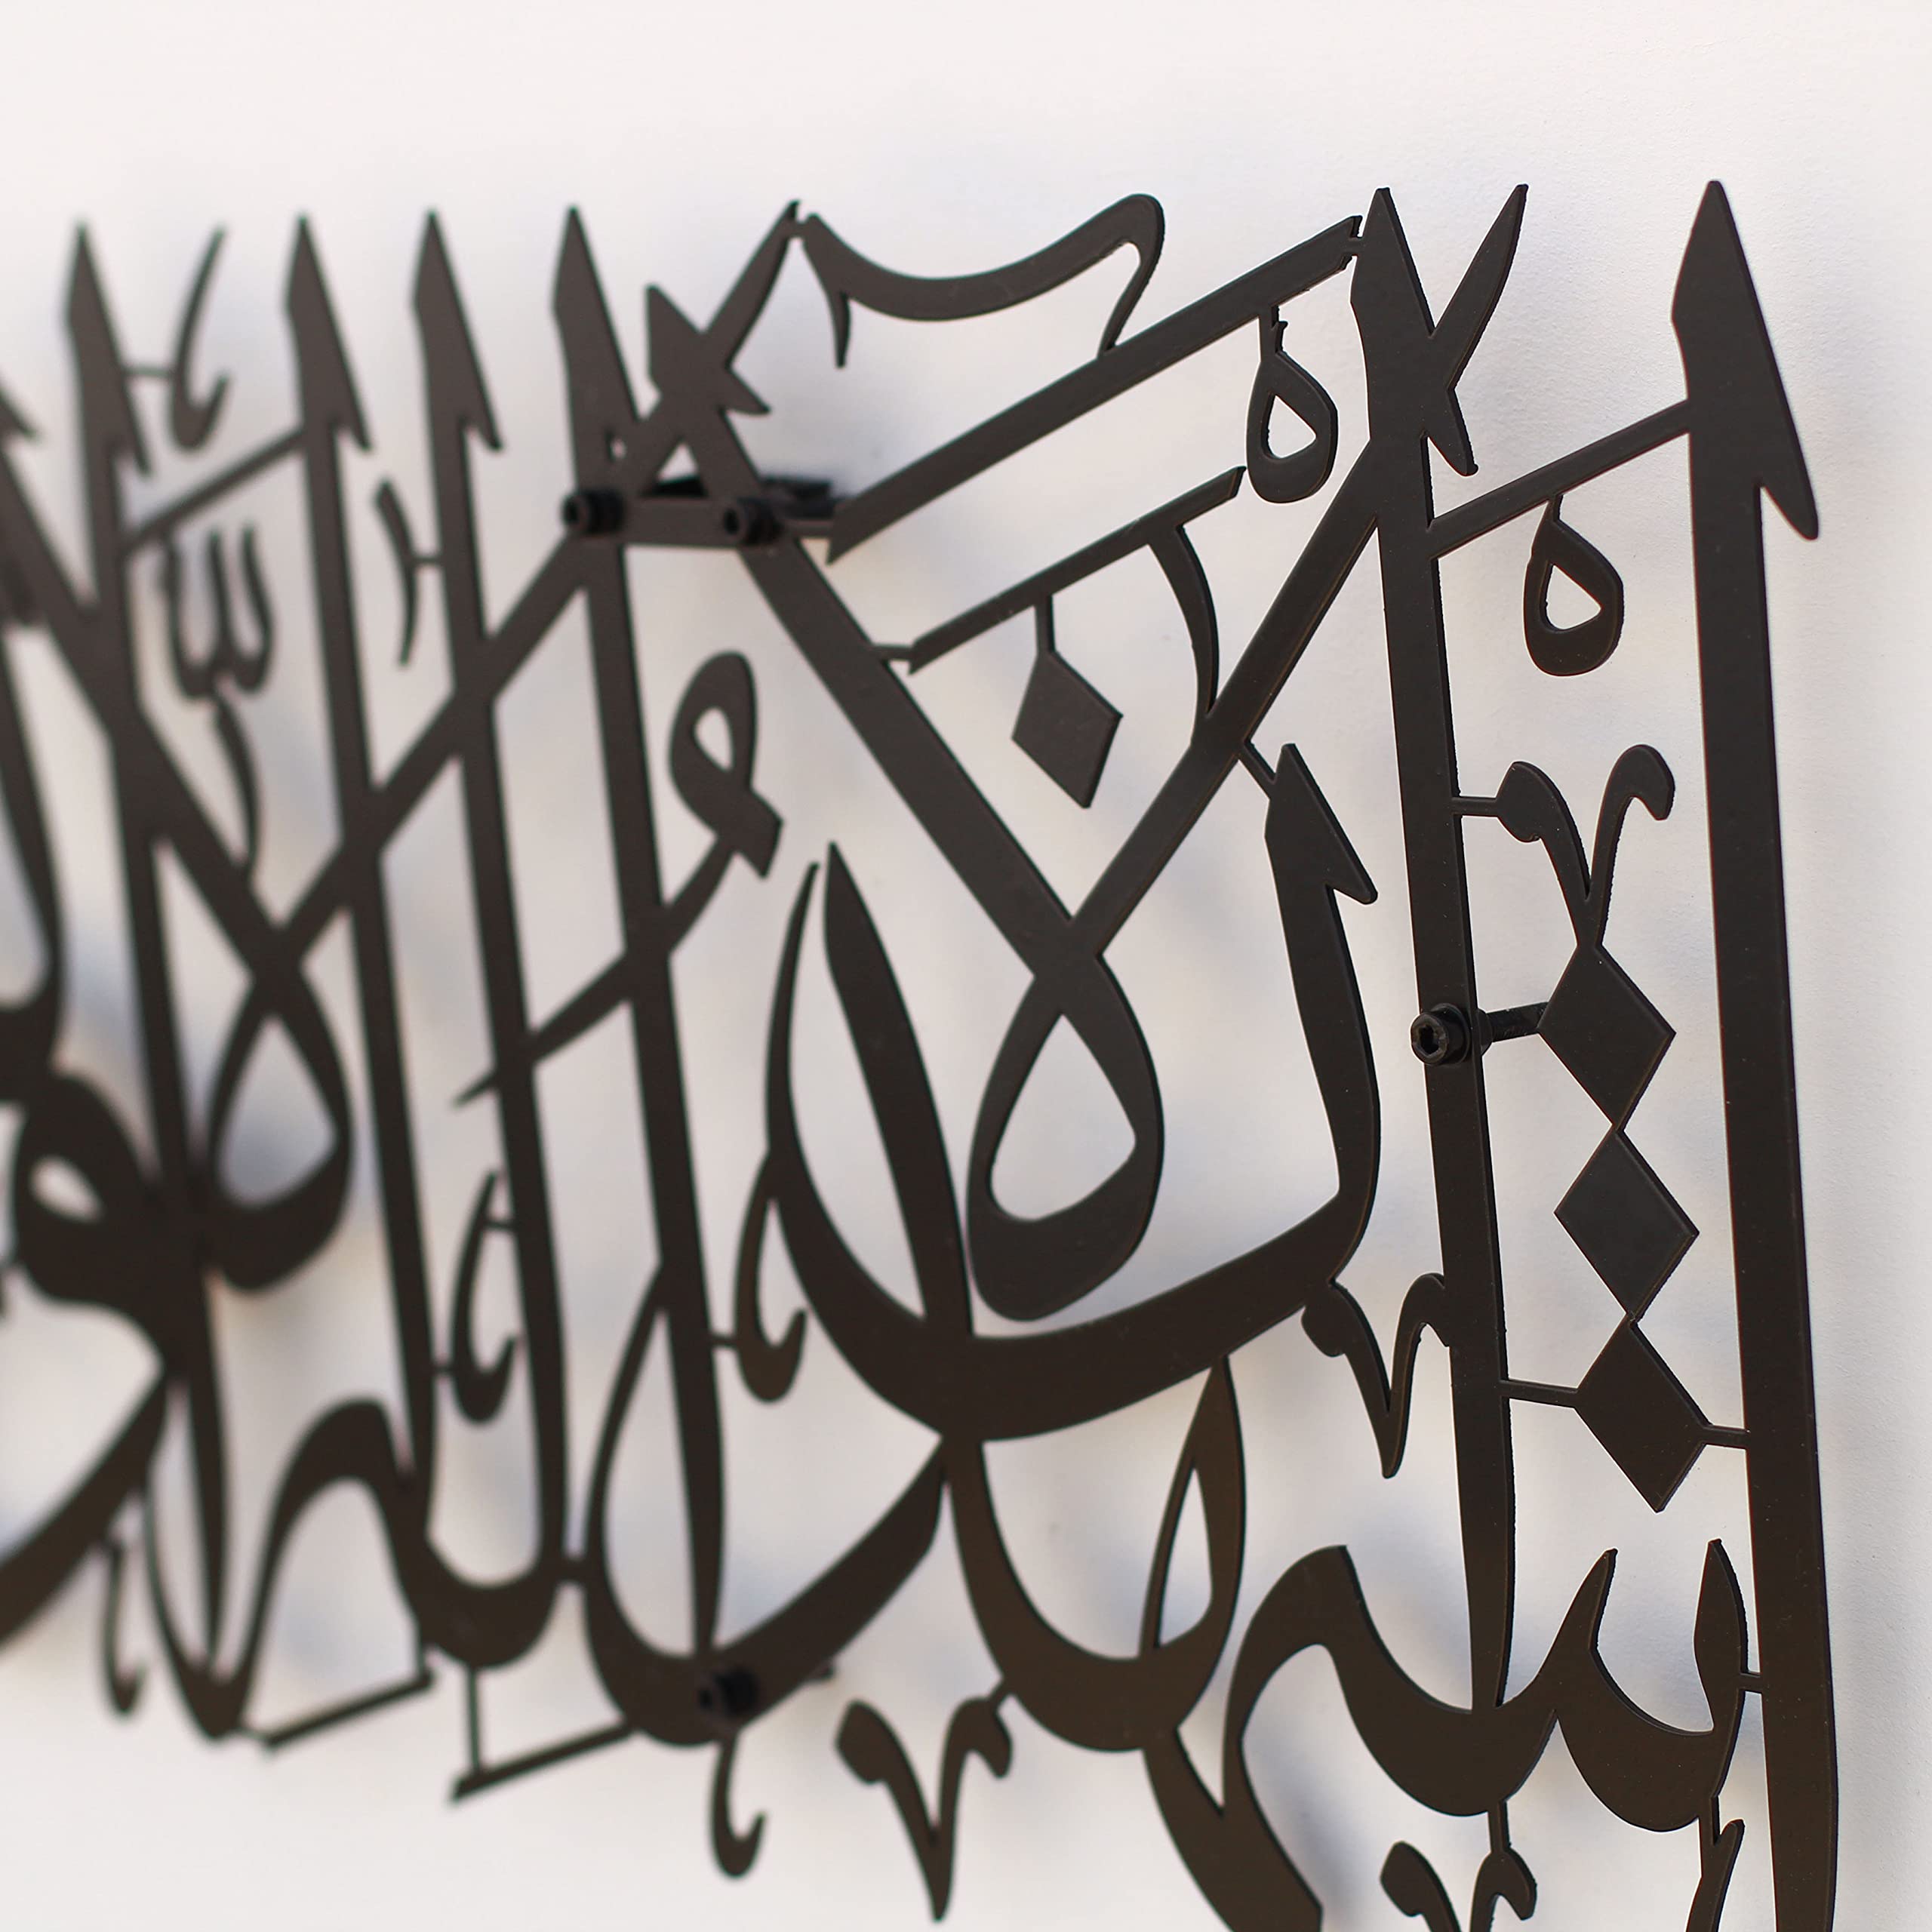 أشهد أن لا إله إلا الله